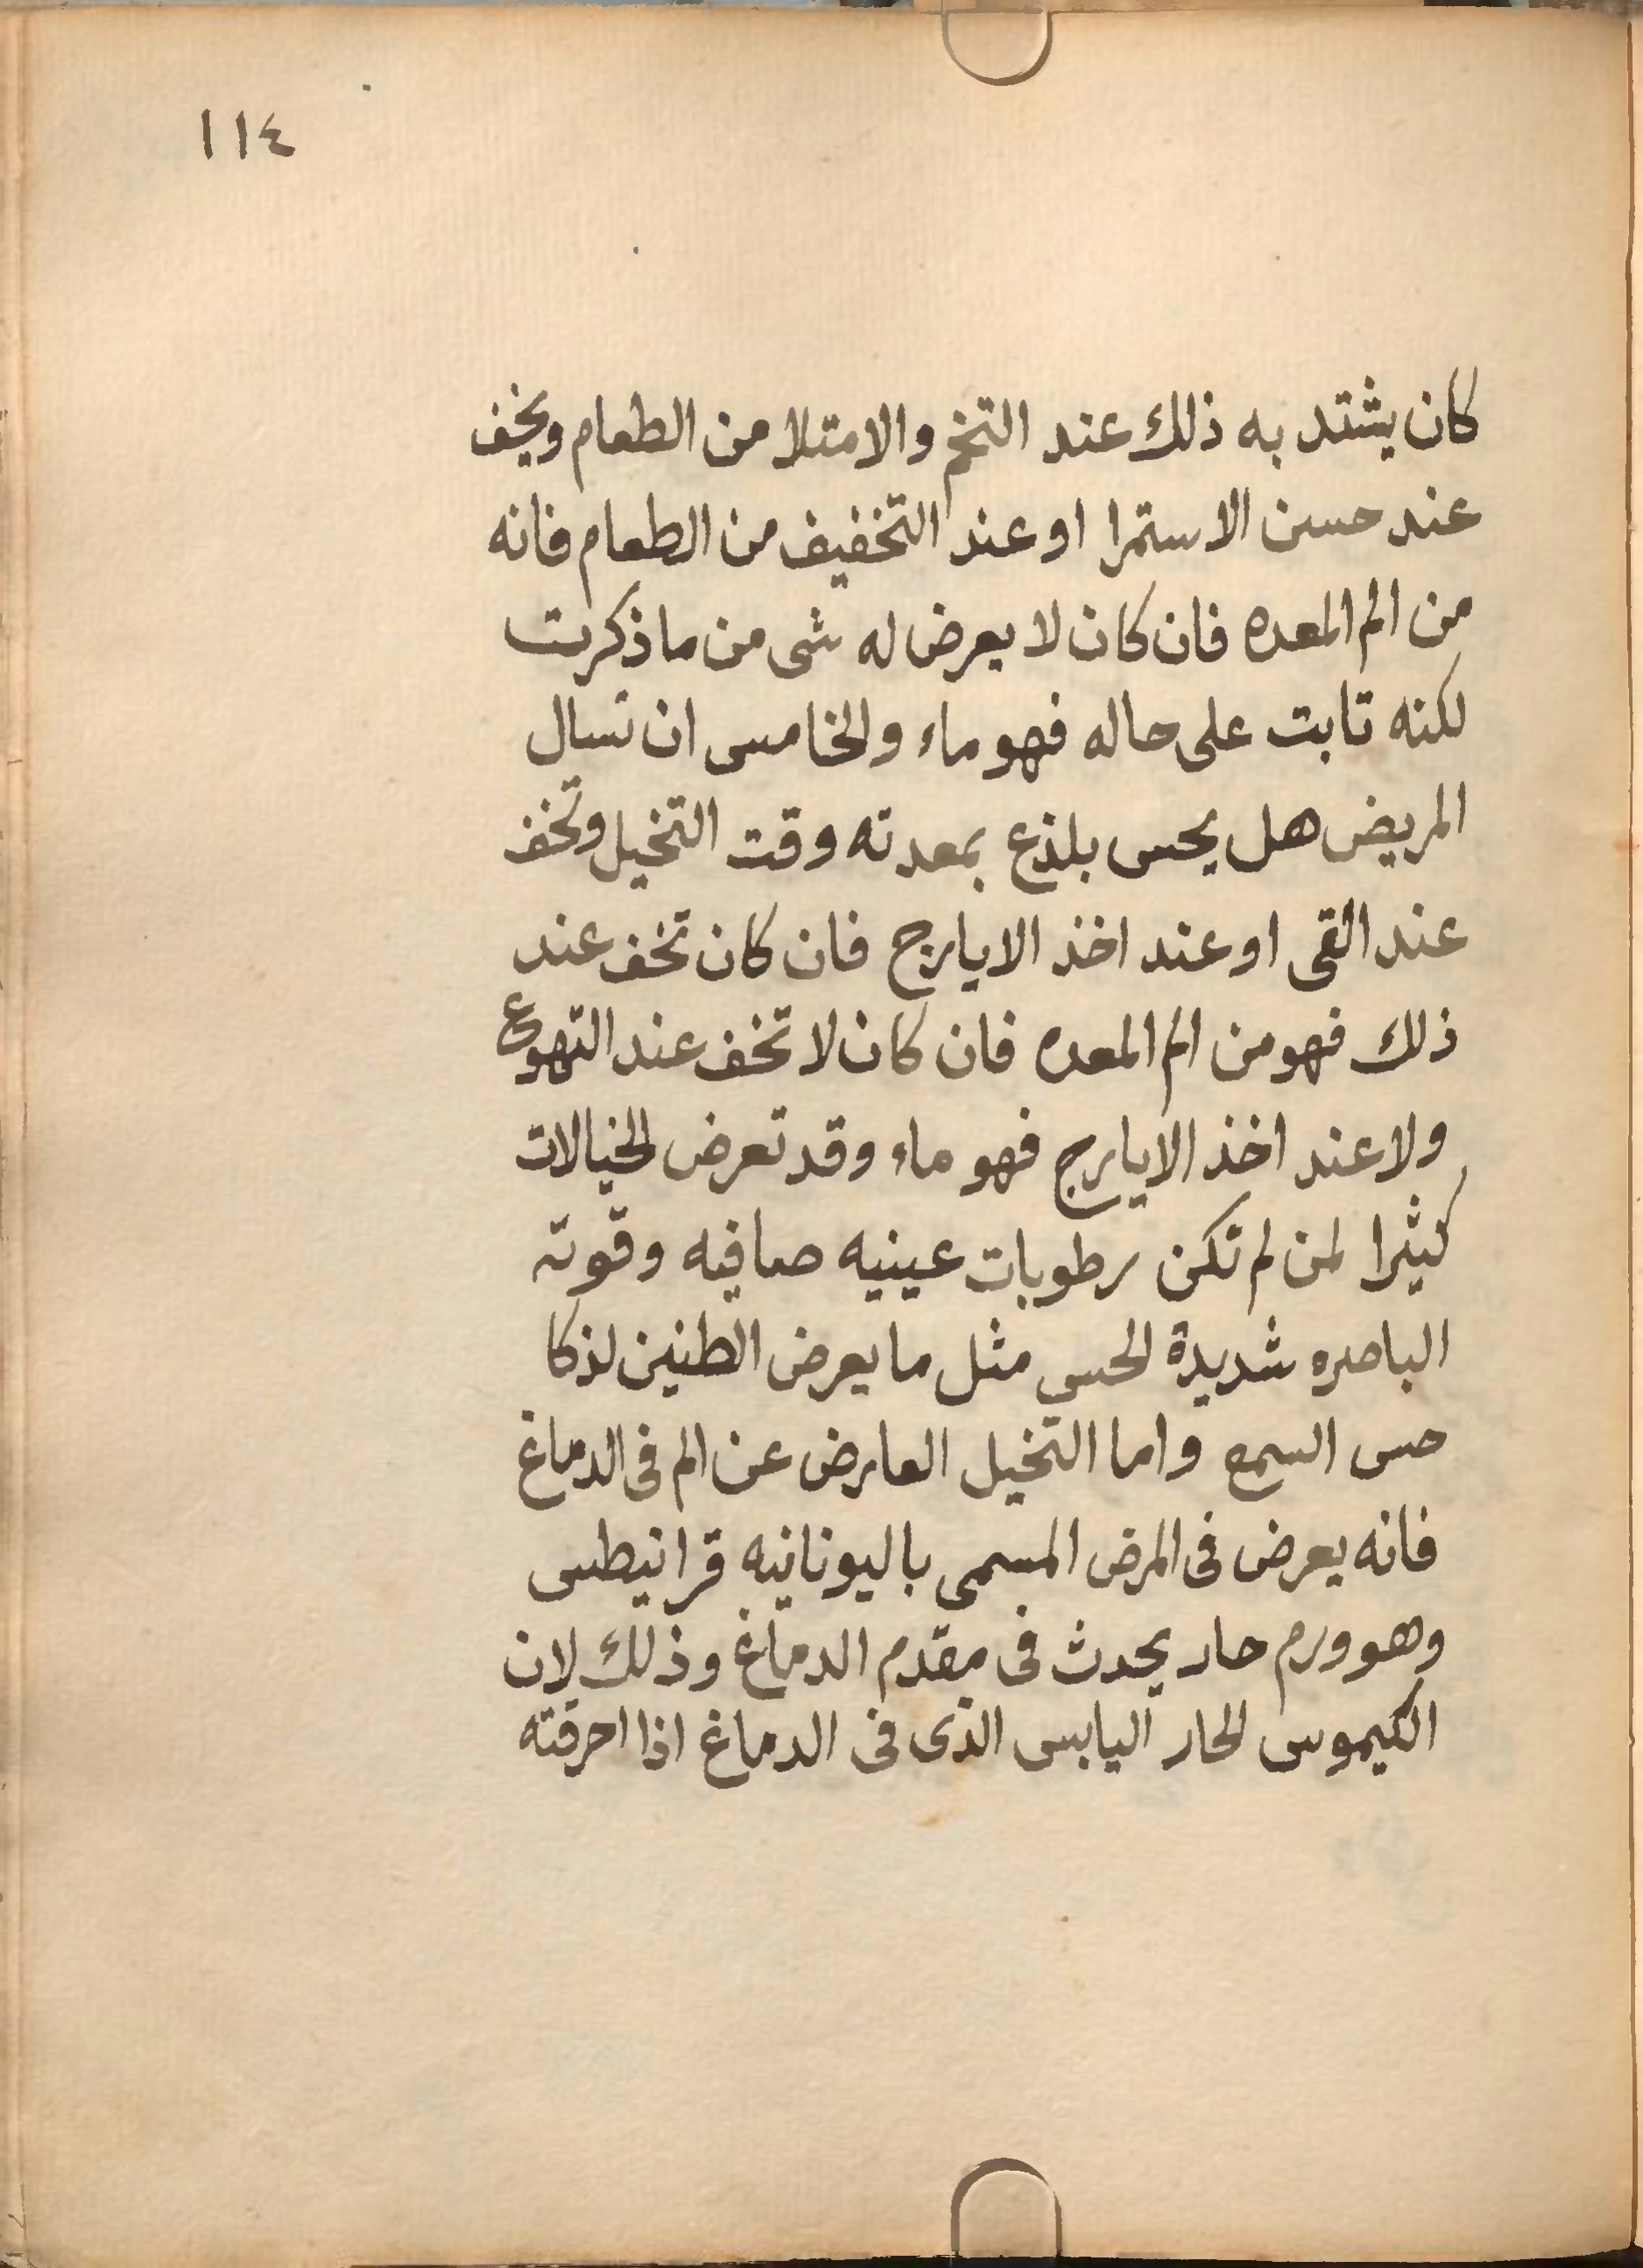 ١١٤
كان يشتد به ذلك عند التخم والامتلا من الطعام ويخف
عند حسن الاستمرا او عند التخفيف من الطعام فانه
من الم المعده فان كان لا يعرض له شى من ما ذكرت
لكنه تابت على حاله فهو ماء والخامس ان تسال
المريض هل يحس بلذع بمعدته وقت التخيل وتخف
عند القى او عند اخذ الايارج فان كان تخف عند
ذلك فهو من الم المعده فان كان لا تخف عند التهوع
ولا عند اخذ الايارج فهو ماء وقد تعرض الخيالات
كثيرا لمن لم تكن رطوبات عينيه صافيه وقوته
الباصره شديدة الحس مثل ما يعرض الطنين لذكا
حس السمع واما التخيل العارض عن الم فى الدماغ
فانه يعرض فى المرض المسمى باليونانيه قرانيطس
وهو ورم حار يحدث فى مقدم الدماغ وذلك لان
الكيموس الحار اليابس الذى فى الدماغ اذا احرقته